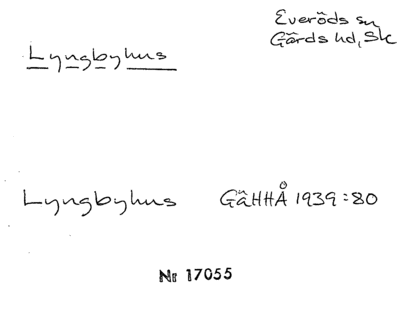 Everöds sn
Gärds hd, Sk
Lyngbyhus
Lyngbyhus GäHHÅ 1939:80
Nr 17055